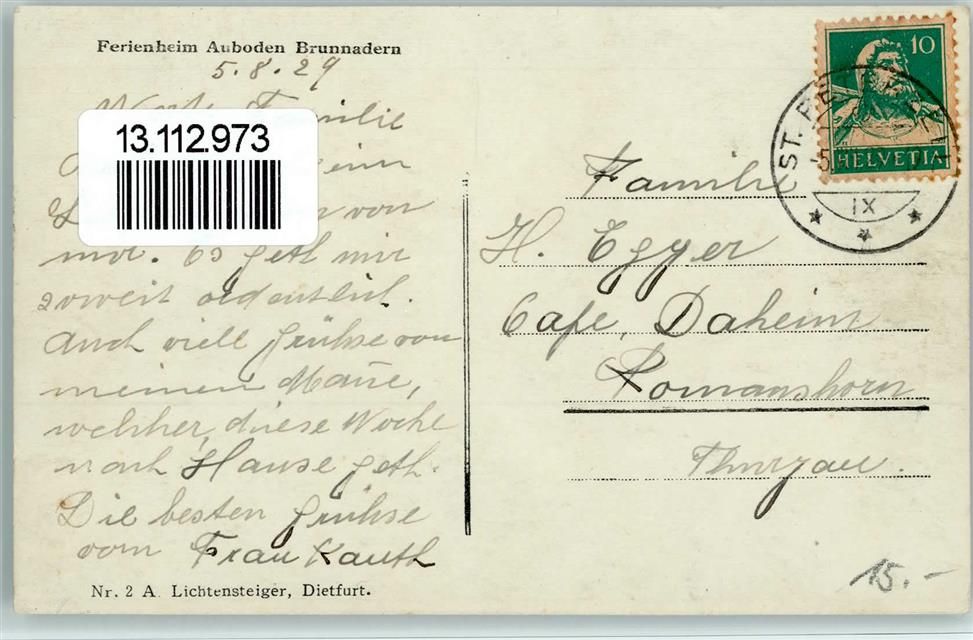 Ferienheim Auboden Brunnadern
5.8.29
Familie
von
mir. Es geth mir
soweit ordentlich.
Auch viele Grühse von
meinem Mañe,
welcher, diese Woche
nach Hause geth.
Die besten Grühse
vom Frau Kauth
Nr. 2 A. Lichtensteiger, Dietfurt.
13.112.973
10
HELVETIA
ST. PE
IX
Familie
H. Egger
Cafe, Daheim
Romanshorn
Thurgau.
15.-